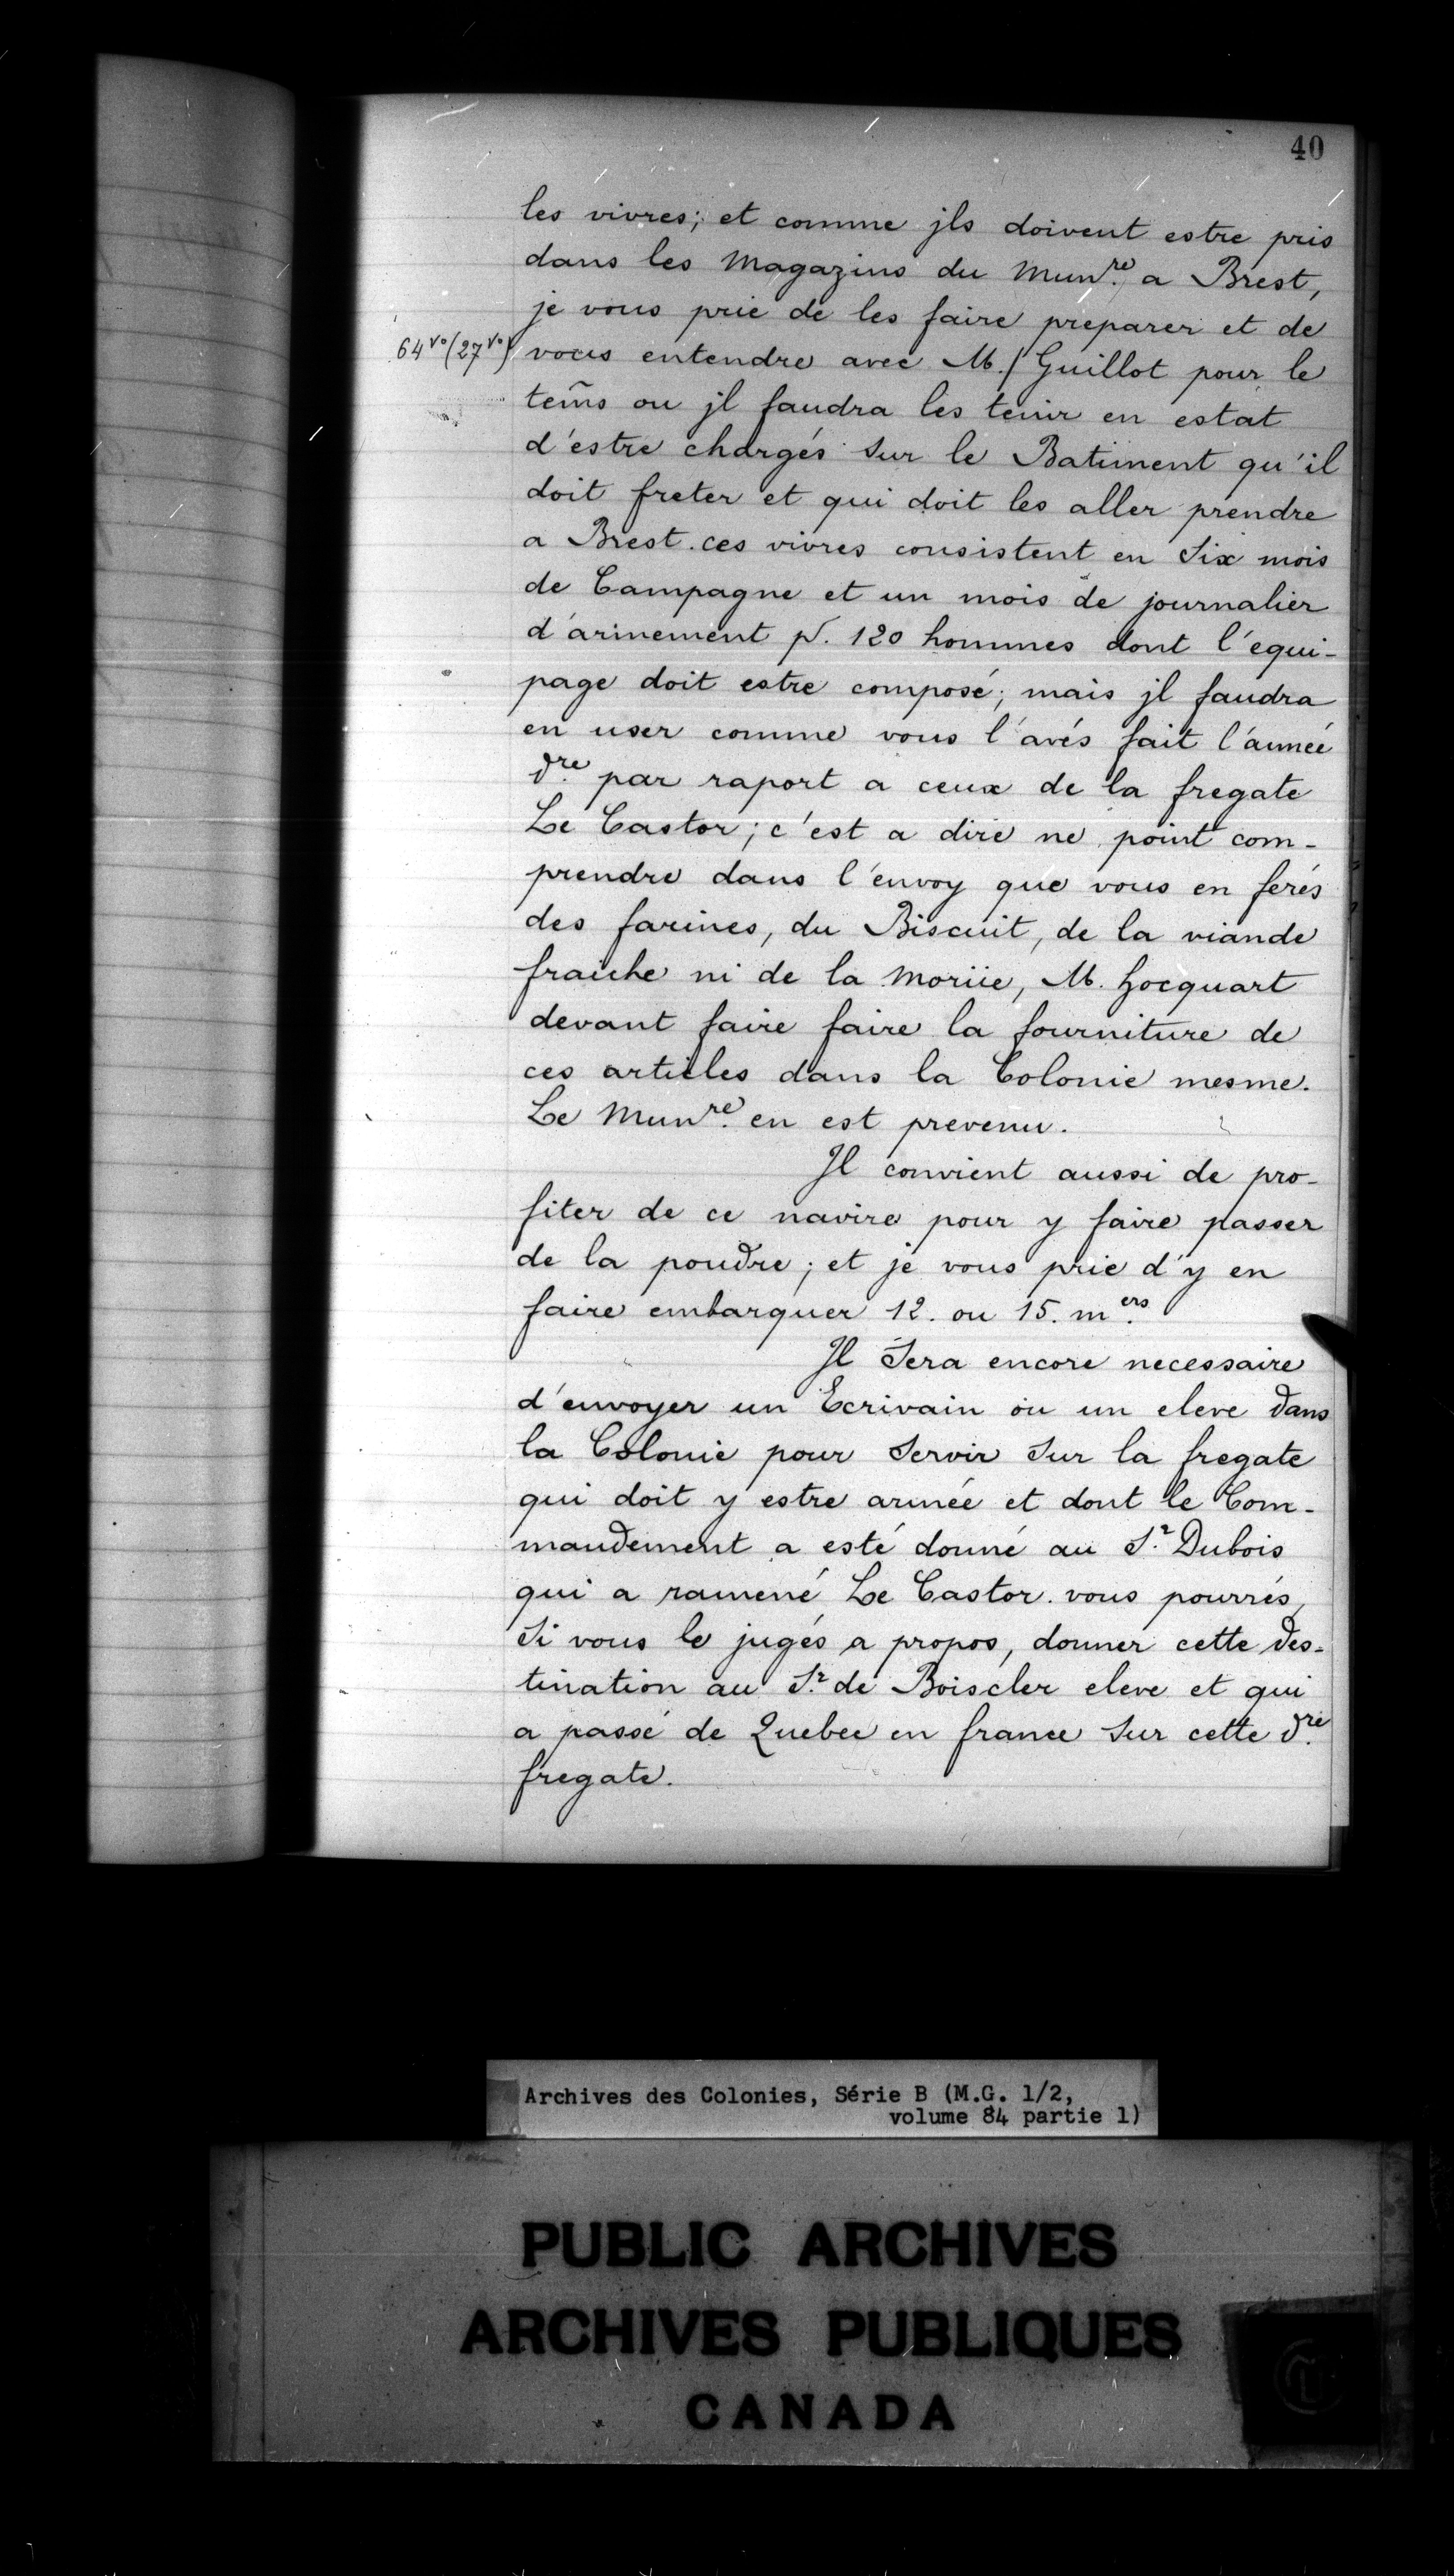 40
les vivres; et comme jls doivent estre pris
dans les Magazins du Mun.re a Brest,
je vous prie de les faire preparer et de
64vo (27vo) vous entendre avec M./Guillot pour le
tem̃s ou jl faudra les tenir en estat
d'estre chargés sur le Batiment qu'il
doit freter et qui doit les aller prendre
a Brest. ces vivres consistent en Six mois
de Campagne et un mois de journalier
d'armement pr. 120 hommes dont l'equi-
page doit estre composé; mais jl faudra
en user comme vous l'avés fait l'année
d.re par raport a ceux de la fregate
Le Castor; c'est a dire ne point com-
prendre dans l'envoy que vous en ferés
des farines, du Biscuit, de la viande
fraiche ni de la Morüe, M. hocquart
devant faire faire la fourniture de
ces articles dans la Colonie mesme.
Le Mun.re en est prevenu.
Il convient aussi de pro-
fiter de ce navire pour y faire passer
de la poudre; et je vous prie d'y en
faire embarquer 12. ou 15. m.ers
Il Sera encore necessaire
d'envoyer un Ecrivain ou un eleve dans
la Colonie pour Servir Sur la fregate
qui doit y estre armée et dont le Com-
mandement a esté donné au S.r Dubois
qui a ramené Le Castor. vous pourrés,
Si vous le jugés a propos, donner cette des-
tination au S.r de Boiscler eleve et qui
a passé de Quebec en france Sur cette d.re
fregate.
Archives des Colonies, Série B (M.G. 1/2,
volume 84 partie 1)
PUBLIC ARCHIVES
ARCHIVES PUBLIQUES
CANADA